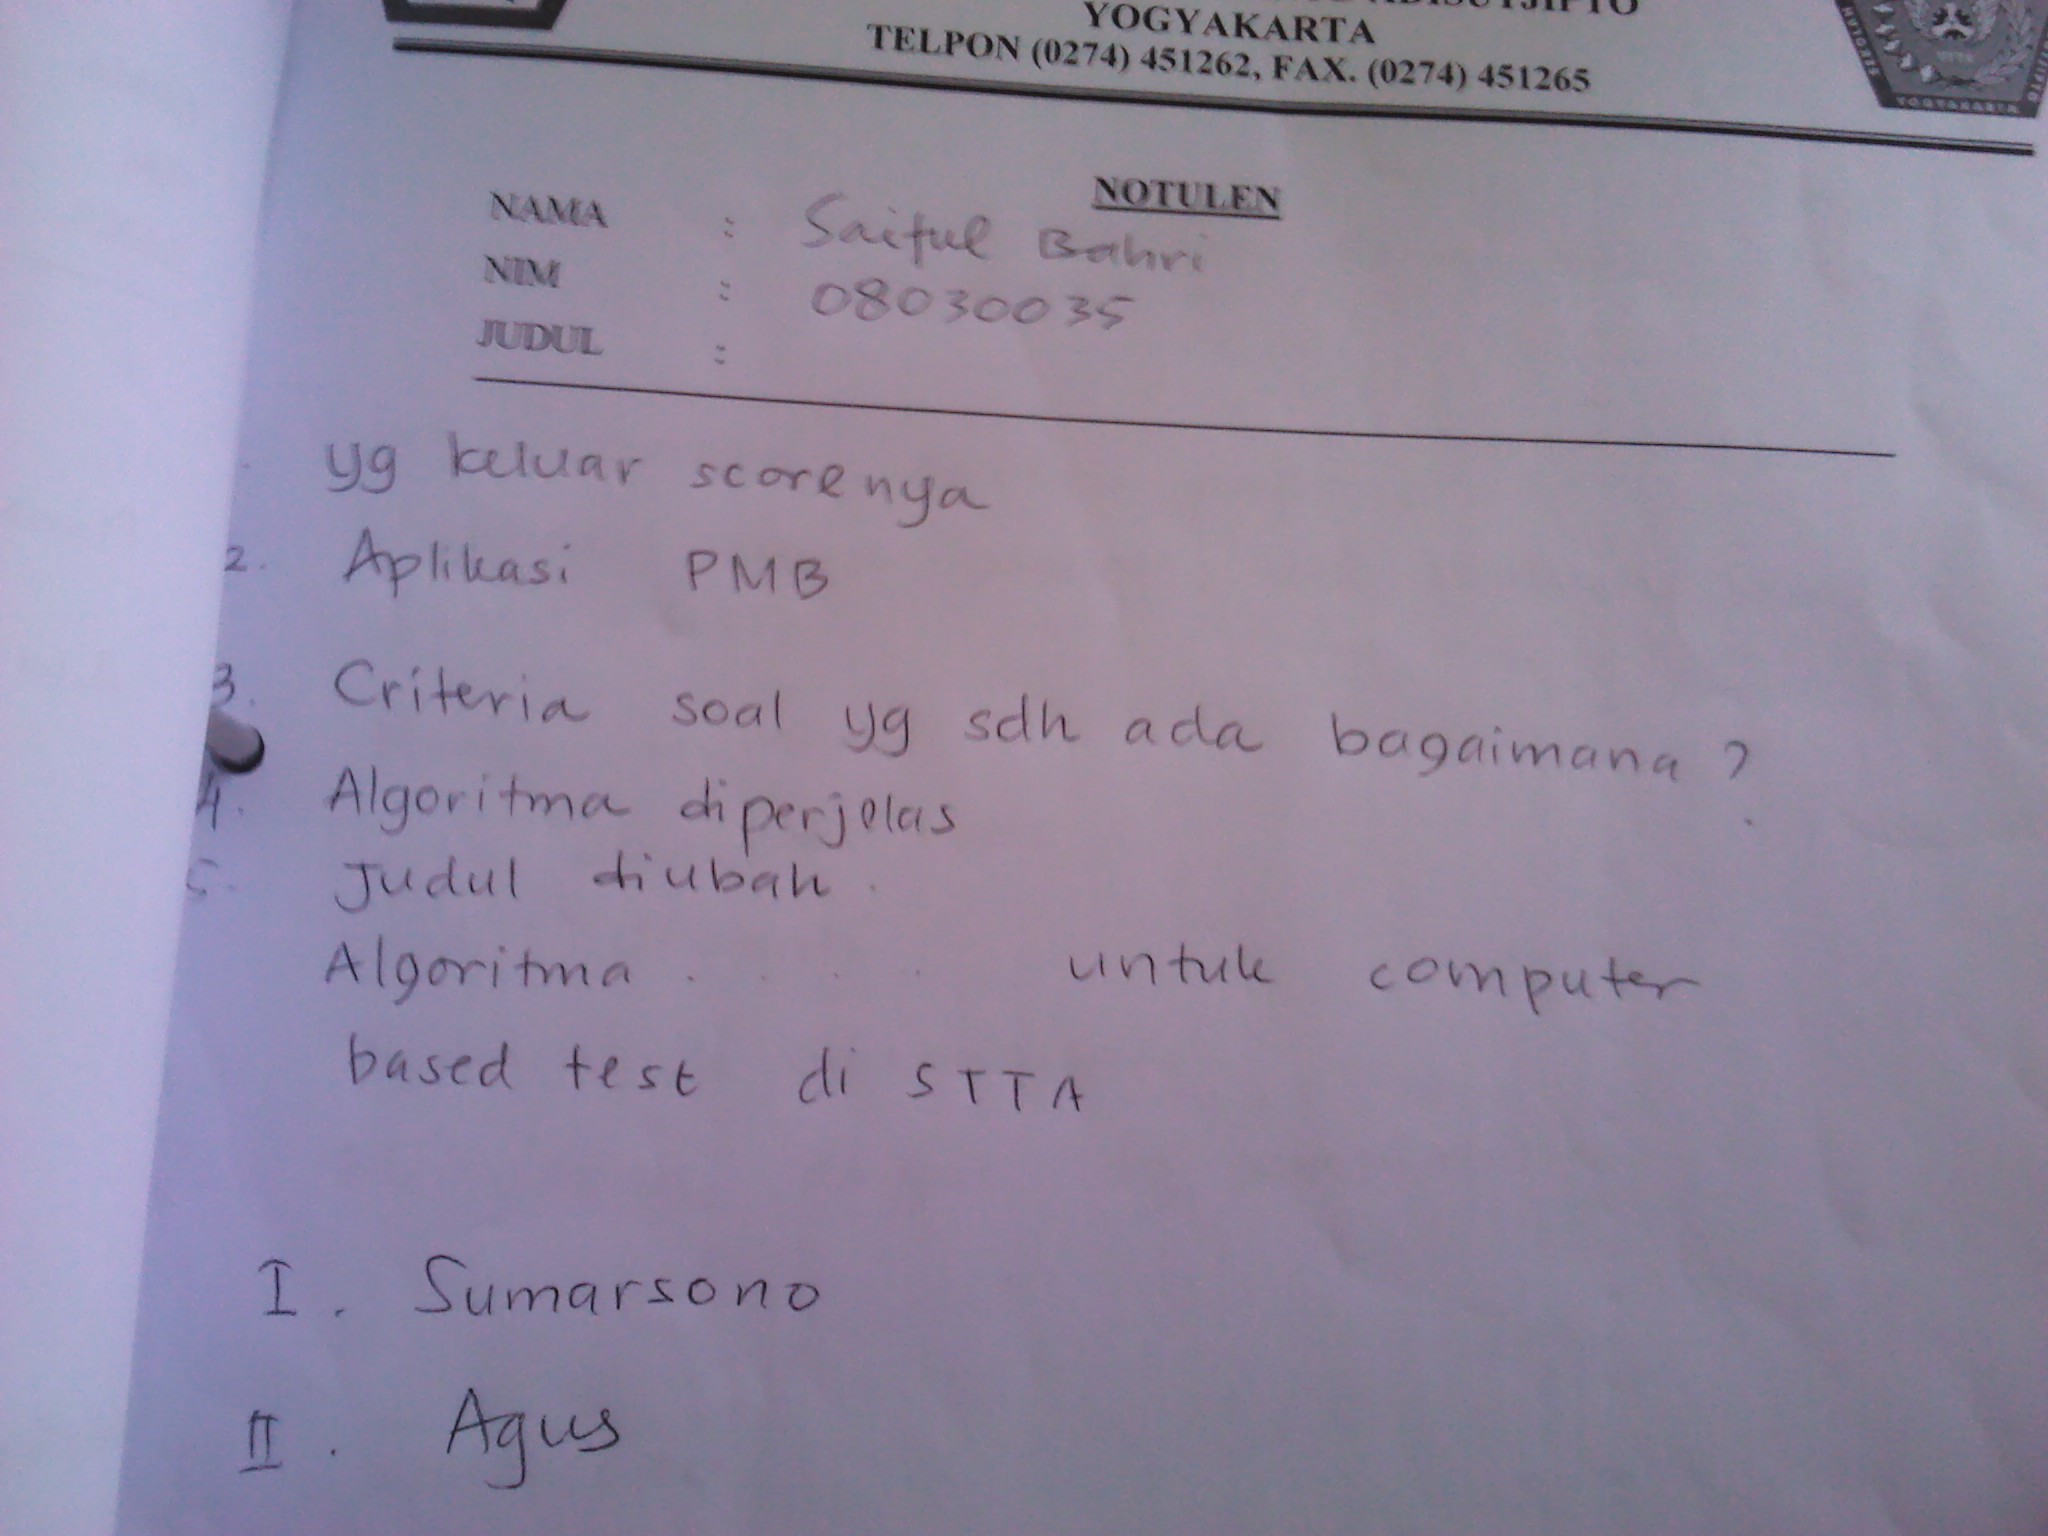 ADISUTJIPTO
YOGYAKARTA
TELPON (0274) 451262, FAX. (0274) 451265
YOGYAKARTA
NOTULEN
NAMA : Saiful Bahri
NIM : 08030035
JUDUL :
yg keluar scorenya
2. Aplikasi PMB
3. Criteria soal yg sdh ada bagaimana ?
4. Algoritma diperjelas
5. Judul diubah.
Algoritma . . . . untuk computer
based test di STTA
I. Sumarsono
II. Agus